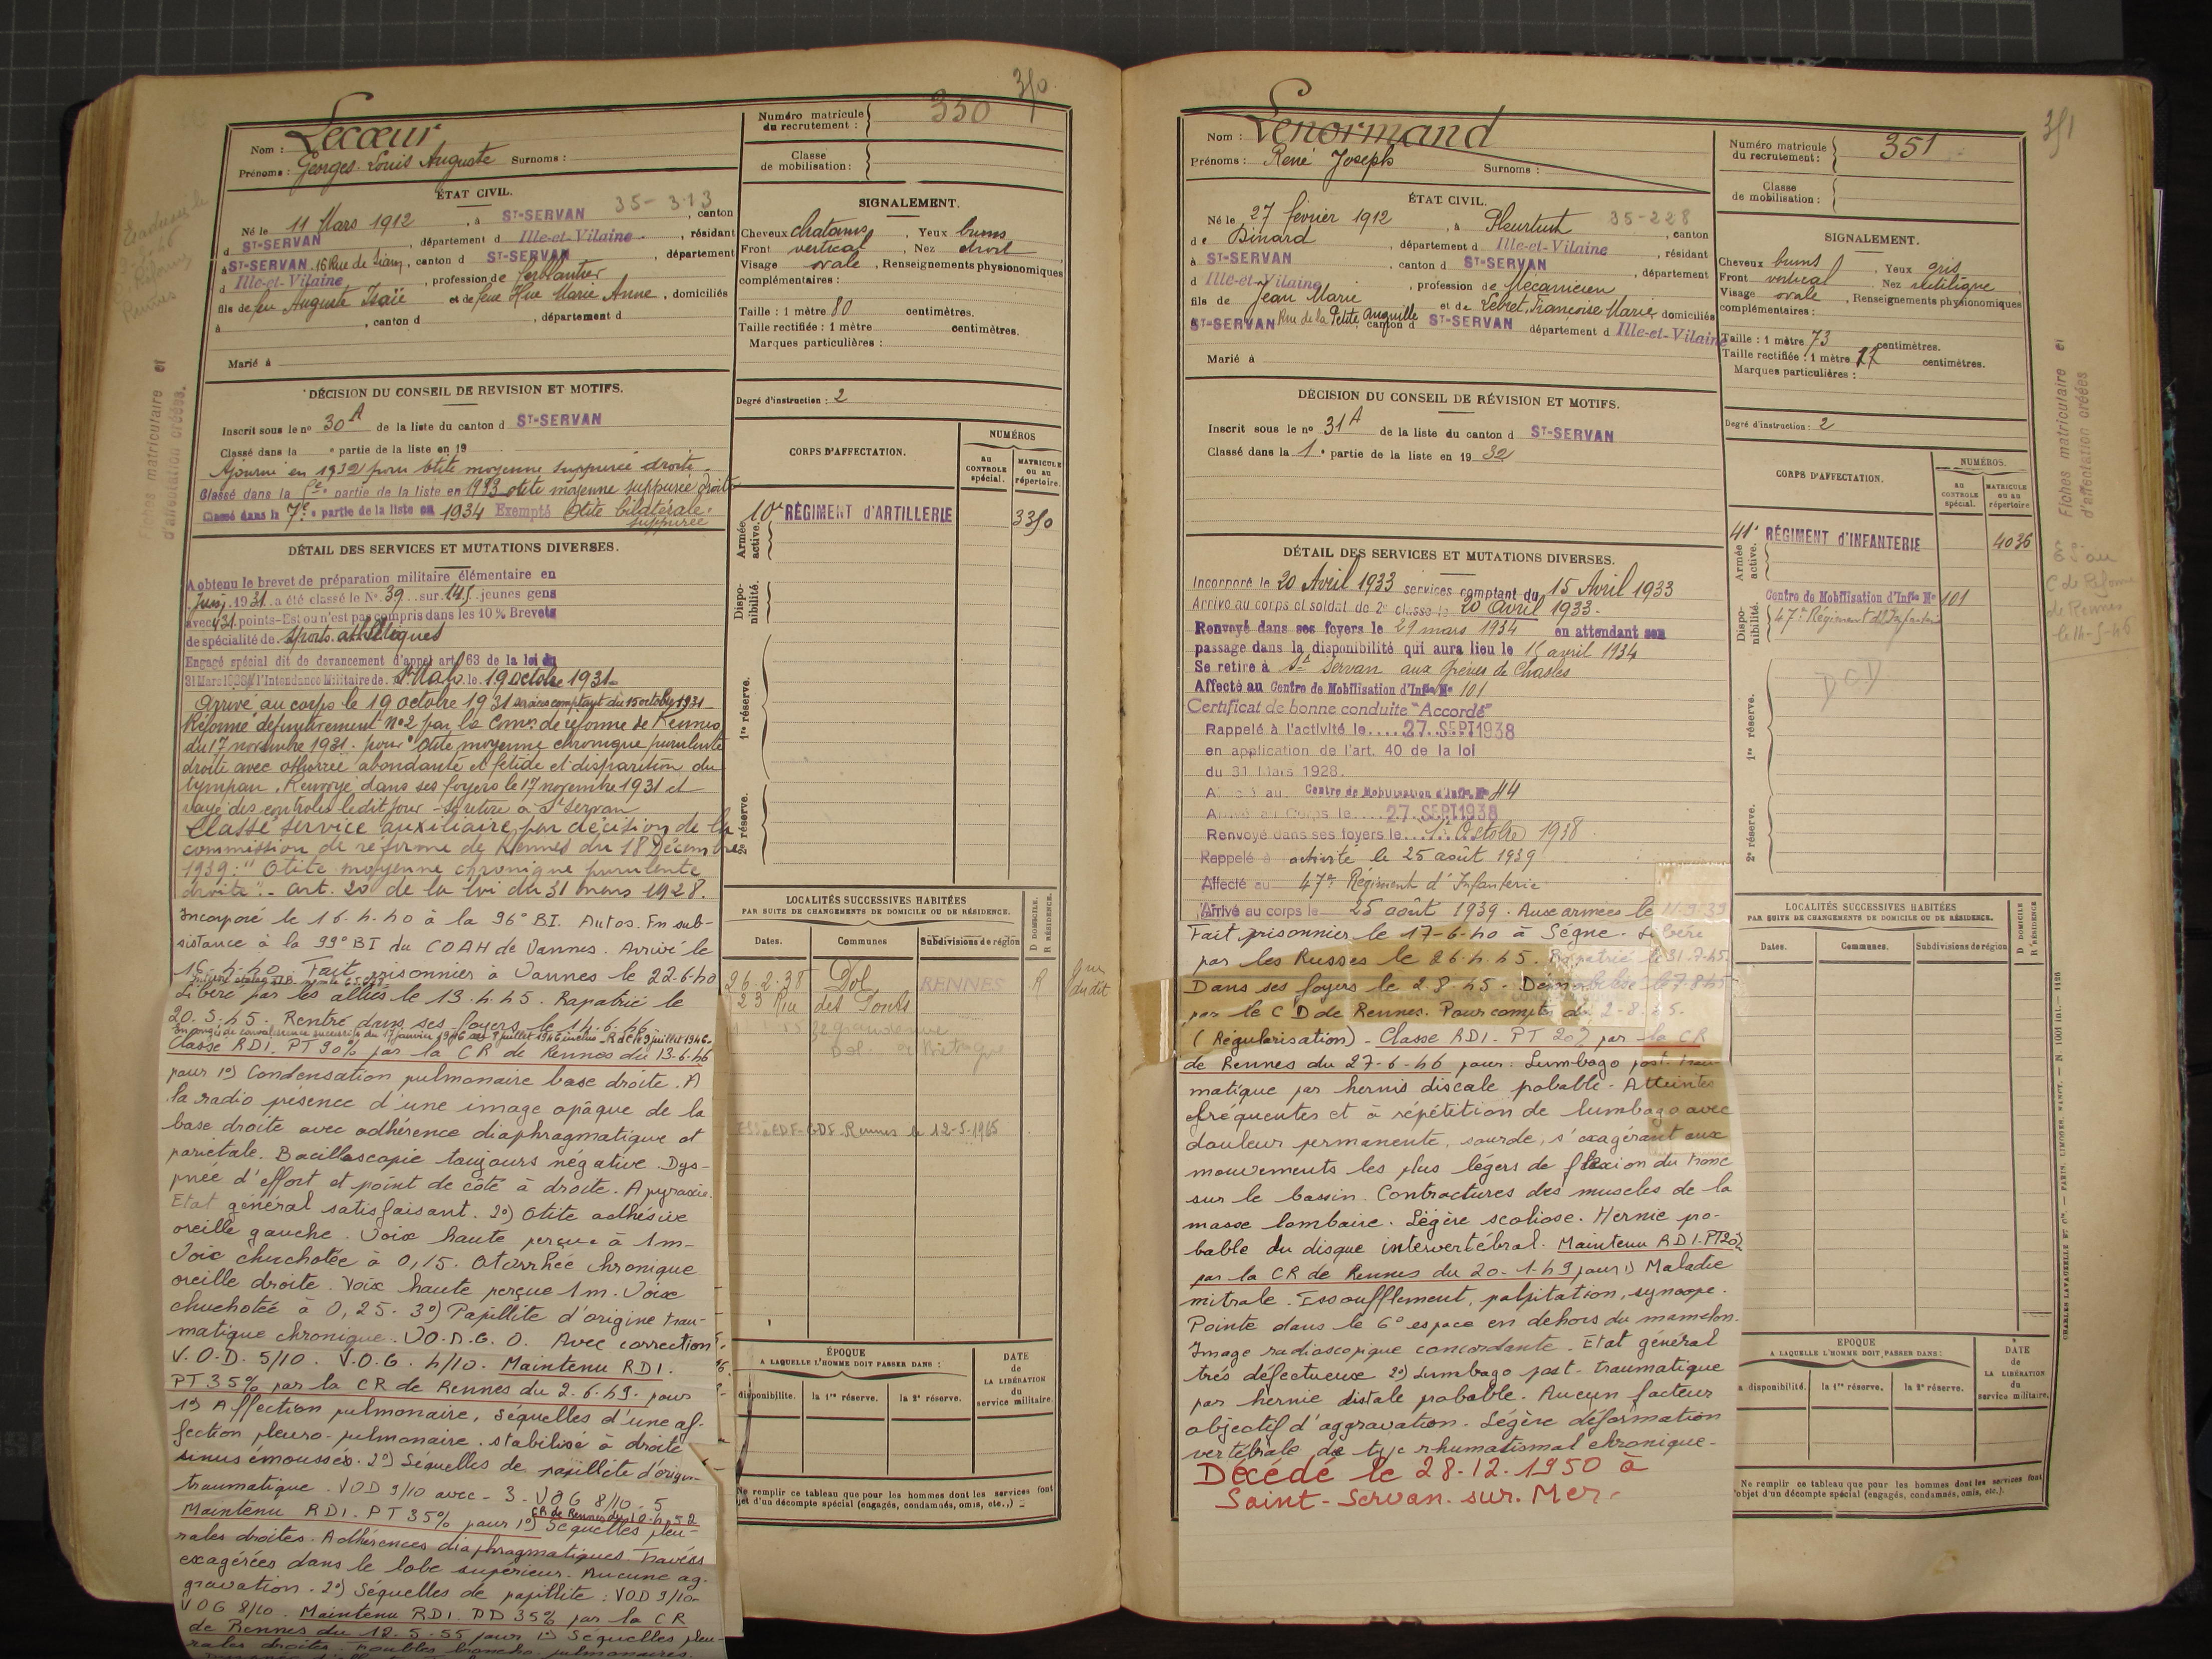 350
350
Nom : Lecœur
Prénoms : Georges Louis Auguste Surnoms :
Numéro matricule du recrutement :
Classe de mobilisation :
ÉTAT CIVIL.
35-313
Né le 11 Mars 1912, à ST-SERVAN, canton
d ST-SERVAN, département d Ille-et-Vilaine, résidant
à ST-SERVAN, 16 Rue de, canton d ST-SERVAN, département
d Ille-et-Vilaine, profession de ferblantier
fils de feu Auguste Isaïe et de feue Hue Marie Anne, domiciliés
à , canton d , département d
Marié à
SIGNALEMENT.
Cheveux chatains, Yeux bruns
Front vertical, Nez droit
Visage ovale, Renseignements physionomiques
complémentaires :
Taille : 1 mètre 80 centimètres.
Taille rectifiée : 1 mètre centimètres.
Marques particulières :
Degré d'instruction : 2
DÉCISION DU CONSEIL DE REVISION ET MOTIFS.
Inscrit sous le no 30 A de la liste du canton d ST-SERVAN
Classé dans la e partie de la liste en 19
Ajourné en 1932 pour otite moyenne suppurée droite.
Classé dans la partie de la liste en 1933 otite moyenne suppurée droite
Classé dans la 7e partie de la liste en 1934 Exempté Otite bilatérale suppurée
DÉTAIL DES SERVICES ET MUTATIONS DIVERSES.
A obtenu le brevet de préparation militaire élémentaire en
Juin 1931 a été classé le No 39 sur 145 jeunes gens
avec 431 points - Est ou n'est pas compris dans les 10% Brevets
de spécialité de Sports athlétiques
Engagé spécial dit de devancement d'appel art 63 de la loi du
31 Mars 1928 à l'Intendance Militaire de St Malo le 19 octobre 1931.
Arrivé au corps le 19 octobre 1931 services comptant du 15 octobre 1931
Réformé définitivement no 2 par la Comon de réforme de Rennes
du 17 novembre 1931. pour "Otite moyenne chronique purulente
droite avec othorrée abondante et fétide et disparition du
tympan. Renvoyé dans ses foyers le 17 novembre 1931 et
rayé des controles ledit jour - se retire à St Servan
Classé service auxiliaire par décision de la
commission de réforme de Rennes du 18 Décembre
1939 : "Otite moyenne chronique purulente
droite". - art. 20 de la loi du 31 mars 1928.
Incorporé le 16-4-40 à la 96e BI. Autos. En sub-
sistance à la 99e BI du COAH de Vannes. Arrivé le
16-4-40. Fait prisonnier à Vannes le 22-6-40
Libéré par les alliés le 13.4.45. Rapatrié le
20.5.45. Rentré dans ses foyers le 14.6.46
En congé de convalescence successifs du 17 janvier 1946 au 8 juillet 1946 inclus - R de C le 9 juillet 1946
Classé RD1. PT 90% par la CR de Rennes du 13-6-46
pour 1o) Condensation pulmonaire base droite. A
la radio présence d'une image opâque de la
base droite avec adhérence diaphragmatique et
pariétale. Bacilloscopie toujours négative. Dys-
pnée d'effort et point de côté à droite. Apyrexie.
Etat général satisfaisant. 2o) Otite adhésive
oreille gauche. Voix haute perçue à 1m-
Voix chuchotée à 0,15. Otorrhée chronique
oreille droite. Voix haute perçue 1m. Voix
chuchotée à 0,25. 3o) Papillite d'origine trau-
matique chronique. VO.D.G. O. Avec correction
V.O.D. 5/10. V.O.G. 4/10. Maintenu RD1.
PT 35% par la CR de Rennes du 2.6.49. pour
1o) Affection pulmonaire, séquelles d'une af-
fection pleuro-pulmonaire. stabilisé à droite
sinus émoussés. 2o) Séquelles de papillite d'origine
traumatique. VOD 9/10 avec - 3. VOG 8/10. 5
CR de Rennes du 10.4.52
Maintenu RD1. PT 35% pour 1o) Séquelles pleu-
rales droites. Adhérences diaphragmatiques. Travées
exagérées dans le lobe supérieur. Aucune ag-
gravation. 2o) Séquelles de papillite : VOD 9/10-
VOG 8/10. Maintenu RD1. PD 35% par la CR
de Rennes du 12.5.55 pour 1o) Séquelles pleu-
rales droites. Troubles broncho-pulmonaires.
CORPS D'AFFECTATION.
NUMÉROS
au CONTROLE spécial.
MATRICULE ou au répertoire.
Armée active.
10e RÉGIMENT D'ARTILLERIE 3350
Dispo-nibilité.
1re réserve.
2e réserve.
LOCALITÉS SUCCESSIVES HABITÉES
PAR SUITE DE CHANGEMENTS DE DOMICILE OU DE RÉSIDENCE.
D DOMICILE. R RÉSIDENCE.
Dates. Communes Subdivisions de région
26-2-38 Dol RENNES R
23 Rue des Ponts
EDF-GDF. Rennes le 12-5-1965
ÉPOQUE
A LAQUELLE L'HOMME DOIT PASSER DANS :
DATE de LA LIBÉRATION du service militaire.
disponibilité. la 1re réserve. la 2e réserve.
Ne remplir ce tableau que pour les hommes dont les services font
jet d'un décompte spécial (engagés, condamnés, omis, etc.,)
Fiches matriculaire et
d'affectation créées.
351
Nom : Lenormand
Prénoms : René Joseph Surnoms :
Numéro matricule du recrutement : 351
Classe de mobilisation :
ÉTAT CIVIL.
Né le 27 février 1912, à Pleurtuit 35-228, canton
de Dinard, département d Ille-et-Vilaine, résidant
à ST-SERVAN, canton d ST-SERVAN, département
d Ille-et-Vilaine, profession de Mécanicien
fils de Jean Marie et de Lebret, Françoise Marie, domiciliés
ST-SERVAN Rue de la Petite Anguille canton d ST-SERVAN département d Ille-et-Vilaine
Marié à
SIGNALEMENT.
Cheveux bruns, Yeux gris
Front vertical, Nez rectiligne
Visage ovale, Renseignements physionomiques
complémentaires :
Taille : 1 mètre 73 centimètres.
Taille rectifiée : 1 mètre centimètres.
Marques particulières :
Degré d'instruction : 2
DÉCISION DU CONSEIL DE RÉVISION ET MOTIFS.
Inscrit sous le no 31 A de la liste du canton d ST-SERVAN
Classé dans la 1e partie de la liste en 1932
DÉTAIL DES SERVICES ET MUTATIONS DIVERSES.
Incorporé le 20 Avril 1933 services comptant du 15 Avril 1933
Arrivé au corps et soldat de 2e classe le 20 avril 1933.
Renvoyé dans ses foyers le 29 mars 1934 en attendant son
passage dans la disponibilité qui aura lieu le 15 avril 1934
Se retire à St Servan aux Grèves de Chasles
Affecté au Centre de Mobilisation d'Infie No 101
Certificat de bonne conduite "Accordé"
Rappelé à l'activité le....27.SEPT1938
en application de l'art. 40 de la loi
du 31 Mars 1928.
Centre de Mobilisation d'Infie No 44
Arrivé au Corps le....27.SEPT1938
Renvoyé dans ses foyers le...1er Octobre 1938
Rappelé à activité le 25 août 1939
Affecté au 47e Régiment d'Infanterie
Arrivé au corps le 25 août 1939. Aux armées le 11-9-39
Fait prisonnier le 17-6-40 à Ségné. Libéré
par les Russes le 26.4.45. Rapatrié le 31.7.45.
Dans ses foyers le 2.8.45. Démobilisé le 7-8-45
par le CD de Rennes. Pour compter du 2-8-45.
(Régularisation) - Classé RD1 - PT 20% par la CR
de Rennes du 27-6-46 pour : Lumbago post-trau-
matique par hernie discale pobable - Atteintes
fréquentes et à répétition de lumbago avec
douleur permanente, sourde, s'exagérant aux
mouvements les plus légers de flexion du tronc
sur le bassin. Contractures des muscles de la
masse lombaire. Légère scoliose. Hernie pro-
bable du disque intervertébral. Maintenu RD1-PT20%
par la CR de Rennes du 20-1-49 pour 1) Maladie
mitrale. Essoufflement, palpitation, syncope.
Pointe dans le 6e espace en dehors du mamelon.
Image radioscopique concordante. Etat général
très défectueux 2o) Lumbago post-traumatique
par hernie distale probable. Aucun facteur
objectif d'aggravation. Légère déformation
vertébrale de type rhumatismal chronique-
Décédé le 28.12.1950 à
Saint-Servan.sur.Mer.
CORPS D'AFFECTATION.
NUMÉROS.
au CONTROLE spécial.
MATRICULE ou au répertoire
Armée active.
41e RÉGIMENT d'INFANTERIE 4036
Dispo-nibilité.
Centre de Mobilisation d'Infie No 101
47e Régiment d'Infanterie
DCD
1re réserve.
2e réserve.
LOCALITÉS SUCCESSIVES HABITÉES
PAR SUITE DE CHANGEMENTS DE DOMICILE OU DE RÉSIDENCE.
D DOMICILE R RÉSIDENCE
Dates. Communes. Subdivisions de région
EPOQUE
A LAQUELLE L'HOMME DOIT PASSER DANS :
DATE de LA LIBÉRATION du service militaire.
a disponibilité. la 1re réserve. la 2e réserve.
Ne remplir ce tableau que pour les hommes dont les services font
l'objet d'un décompte spécial (engagés, condamnés, omis, etc.).
Fiches matriculaire et
d'affectation créées
C de Réforme
de Rennes
le 14-5-46
CHARLES LAVAUZELLE ET Cie. — PARIS, LIMOGES, NANCY.